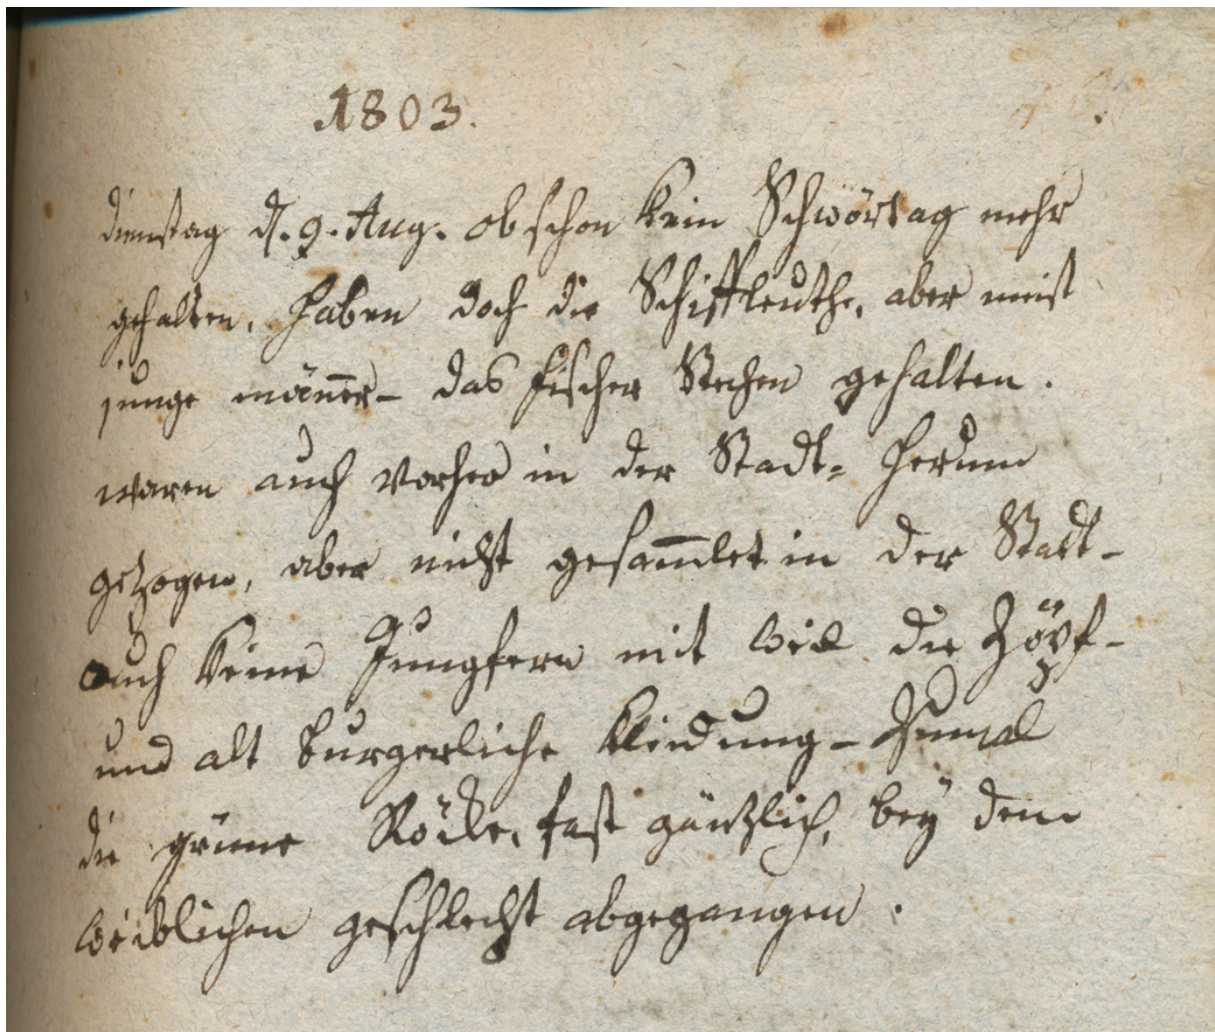 1803.
dienstag d. 9. Aug. obschon kein Schwörtag mehr
gehalten, haben doch die Schiffleuthe, aber meist
junge män̅er- das fischer Stechen gehalten.
waren auch vorher in der Stadt- herum
gezogen, aber nicht gesam̅let in der Statt-
auch keine Jungfern mit weil die Zöpf-
und alt burgerliche Kleidung- Zumal
die grüne Röcke, fast gänzlich, bey dem
weiblichen geschlecht abgegangen.